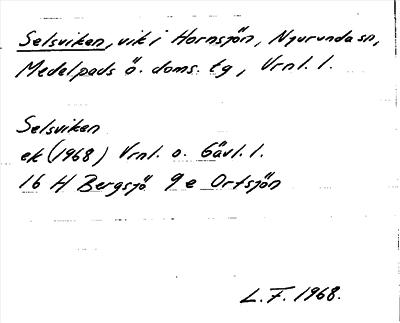 Selsviken, vik i Hornsjön, Njurunda sn,
Medelpads ö. doms. tg, Vrnl. l.
Selsviken
ek (1968) Vrnl. o. Gävl. l.
16 H Bergsjö 9 e Ortsjön
L. F. 1968.